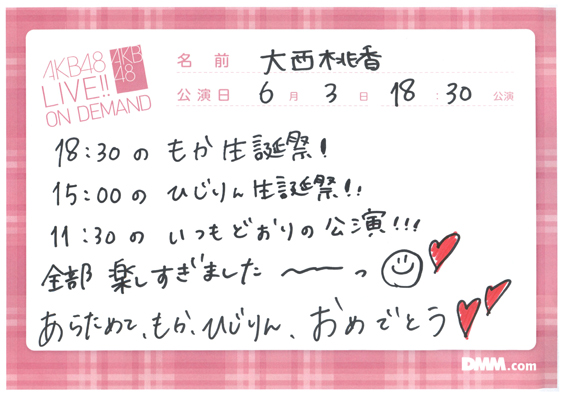 AKB48
LIVE!!
ON DEMAND
AKB
48
名前 大西桃香
公演日 6月3日 18:30公演
18:30の もか生誕祭!
15:00の ひじりん生誕祭!!
11:30の いつもどおりの公演!!!
全部 楽しすぎました 〜〜っ
あらためて、もか、ひじりん、おめでとう
DMM.com